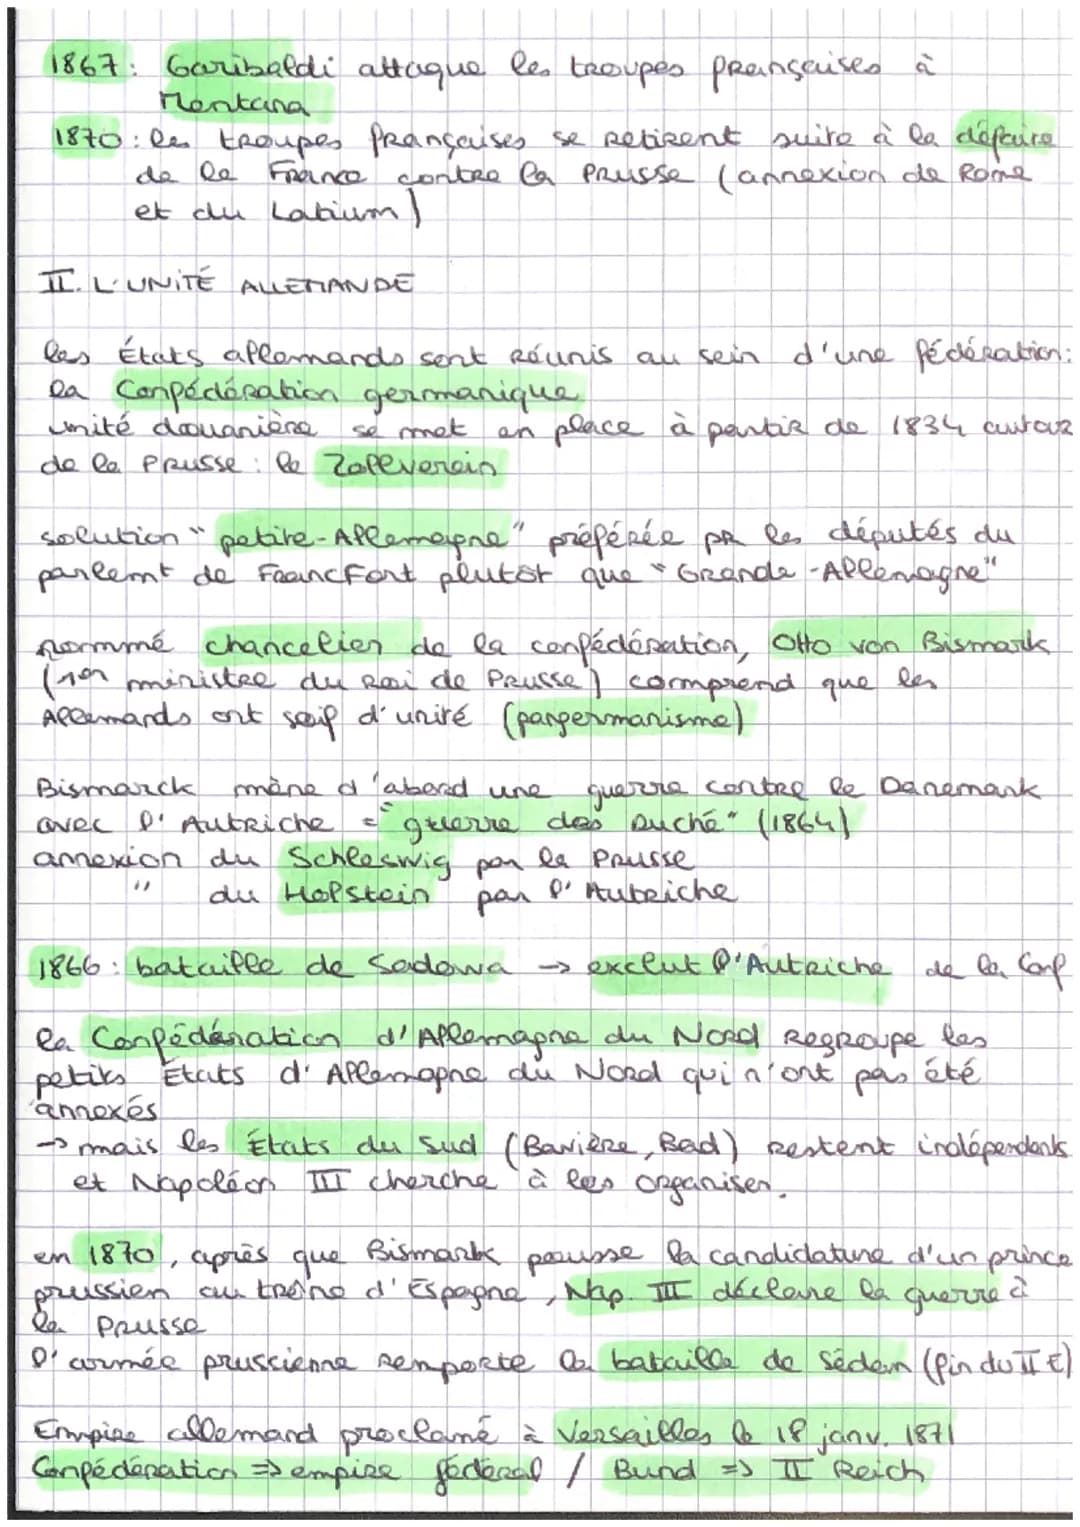 1867: Garibaldi attaque les troupes françaises à
Mentana
1870: les troupes françaises se retirent suite à la défaite
de la France contre la Prusse (annexion de Rome
et du Latium)
II. L'UNITÉ ALLEMANDE
les États allemands sont réunis au sein d'une fédération:
la Confédération germanique
unité douanière se met en place à partir de 1834 autour
de la Prusse: le Zollverein
solution "petite-Allemagne" préférée pR les députés du
parlemt de Francfort plutôt que "Grande-Allemagne"
nommé chancelier de la confédération, Otto von Bismark
(1er ministre du Roi de Prusse) comprend que les
Allemands ont soif d'unité (pangermanisme)
Bismarck mène d'abord une guerre contre le Danemark
avec l'Autriche = "guerre des Duché" (1864)
annexion du Schleswig par la Prusse
" du Holstein par l'Autriche
1866: bataille de Sadowa → exclut l'Autriche de la Conf
la Confédération d'Allemagne du Nord Regroupe les
petits États d'Allemagne du Nord qui n'ont pas été
annexés
→ mais les États du Sud (Bavière, Bad) restent indépendants
et Napoléon III cherche à les organiser.
en 1870, après que Bismark pousse la candidature d'un prince
prussien au trône d'Espagne, Nap. III déclare la guerre à
la Prusse
l'armée prussienne remporte la bataille de Sédan (fin du II E)
Empire allemand proclamé à Versailles le 18 janv. 1871
Confédération => empire fédéral / Bund => II Reich